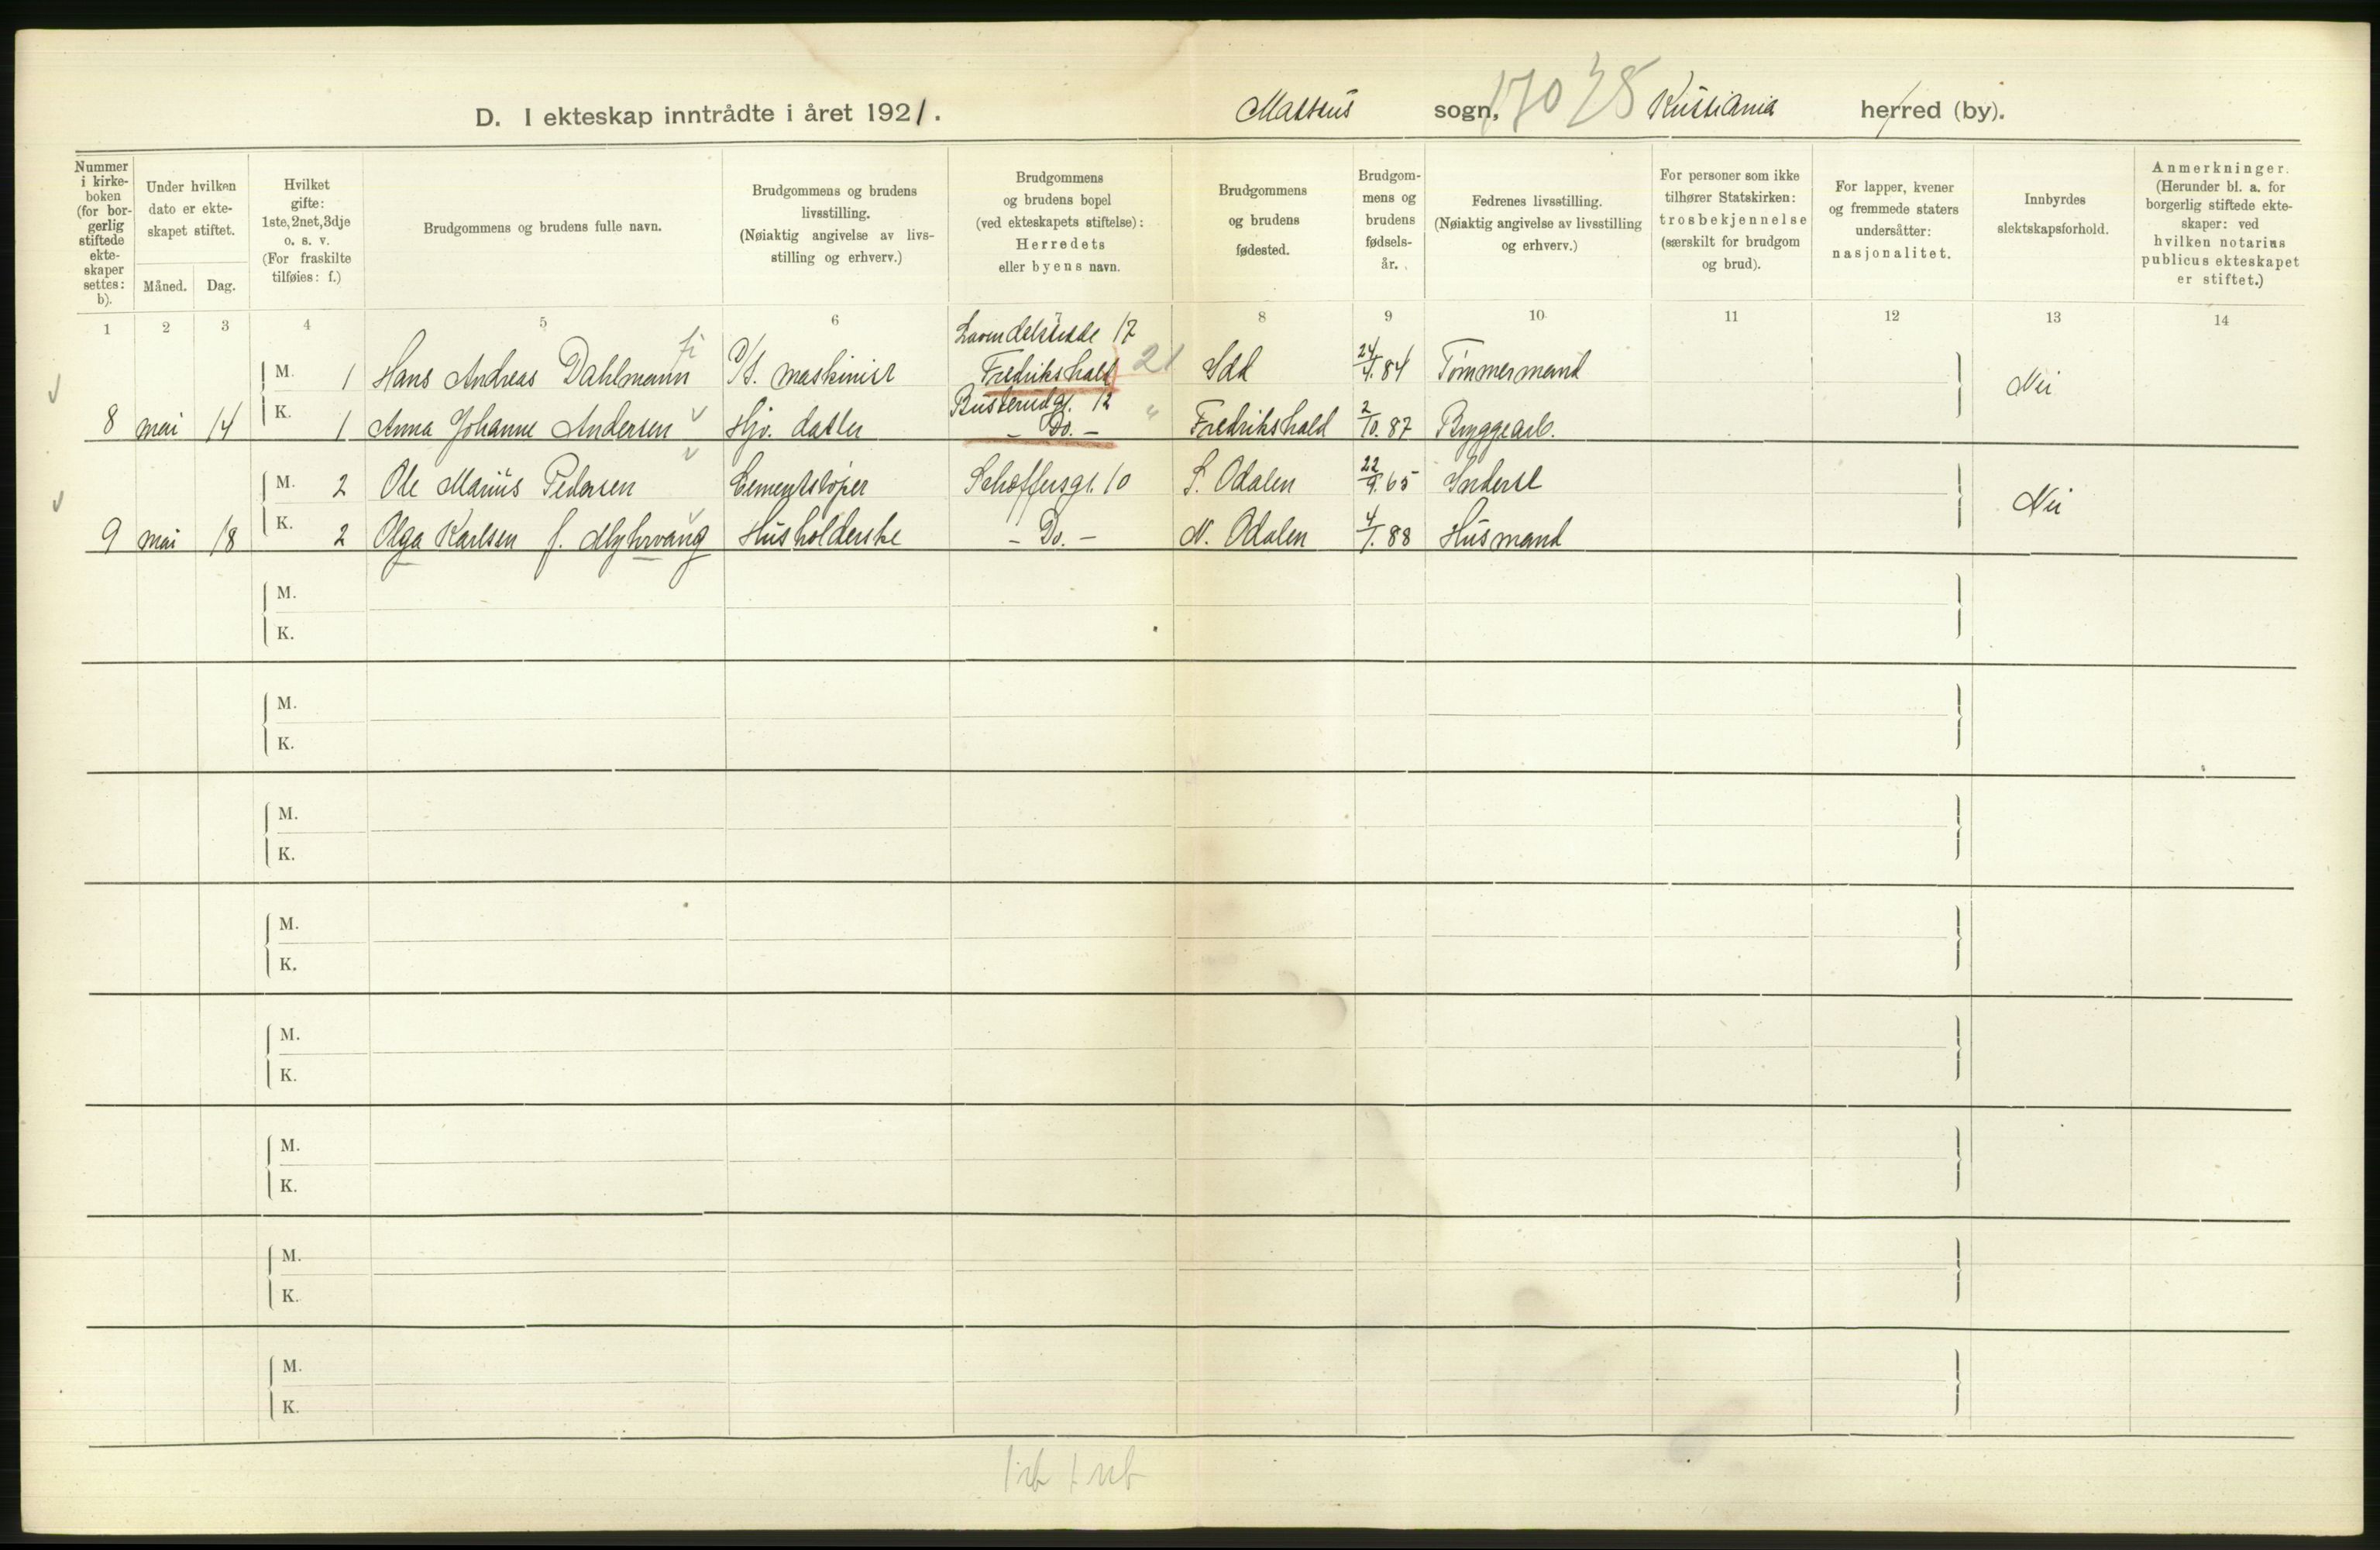 D. I ekteskap inntrådte i året 1921.
Mattæus sogn, 170 28 Kristiania herred (by).
Nummer i kirke-boken (for bor-gerlig stiftede ekte-skaper settes: b).
Under hvilken dato er ekte-skapet stiftet.
Måned. Dag.
Hvilket gifte: 1ste, 2net, 3dje o. s. v. (For fraskilte tilføies: f.)
Brudgommens og brudens fulle navn.
Brudgommens og brudens livsstilling. (Nøiaktig angivelse av livs-stilling og erhverv.)
Brudgommens og brudens bopel (ved ekteskapets stiftelse): Herredets eller byens navn.
Brudgommens og brudens fødested.
Brudgom-mens og brudens fødsels-år.
Fedrenes livsstilling. (Nøiaktig angivelse av livsstilling og erhverv.)
For personer som ikke tilhører Statskirken: trosbekjennelse (særskilt for brudgom og brud).
For lapper, kvener og fremmede staters undersåtter: nasjonalitet.
Innbyrdes slektskapsforhold.
Anmerkninger. (Herunder bl. a. for borgerlig stiftede ekte-skaper: ved hvilken notarius publicus ekteskapet er stiftet.)
1 2 3 4 5 6 8 9 10 11 12 13 14
Lavendelstrede 17
M. 1 Hans Andreas Dahlmann D/S. maskinist Fredrikshald 21 Idd 24/4. 84 Tømmermand Nei
Busterudgt. 12
8 mai 14 K. 1 Anna Johanne Andersen Hjv. datter - Do. - " Fredrikshald 2/10. 87 Bryggearb.
M. 2 Ole Marius Pedersen Cementstøper Schøffersgt. 10 S. Odalen 22/9. 65 Inderst Nei
9 mai 18 K. 2 Olga Karlsen f. Myhrvang Husholderske - Do. - N. Odalen 4/1. 88 Husmand
M.
K.
M.
K.
M.
K.
M.
K.
M.
K.
M.
K.
M.
K.
M.
K.